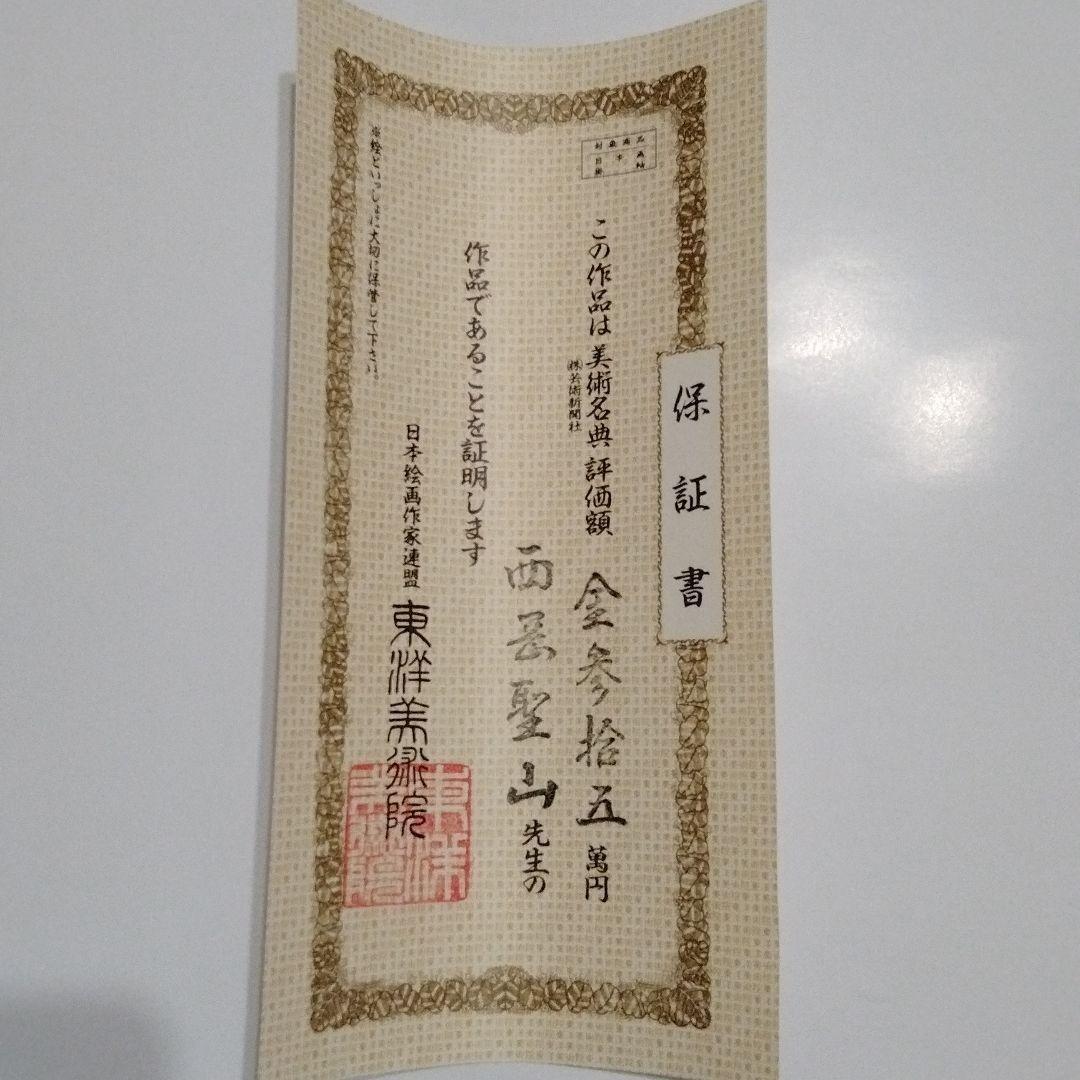 保証書
対象商品
日本画
掛軸
この作品は美術名典評価額金参拾五萬円
㈱芸術新聞社
西岳聖山先生の
作品であることを証明します
日本絵画作家連盟 東洋美術院
※絵といっしょに大切に保管して下さい。